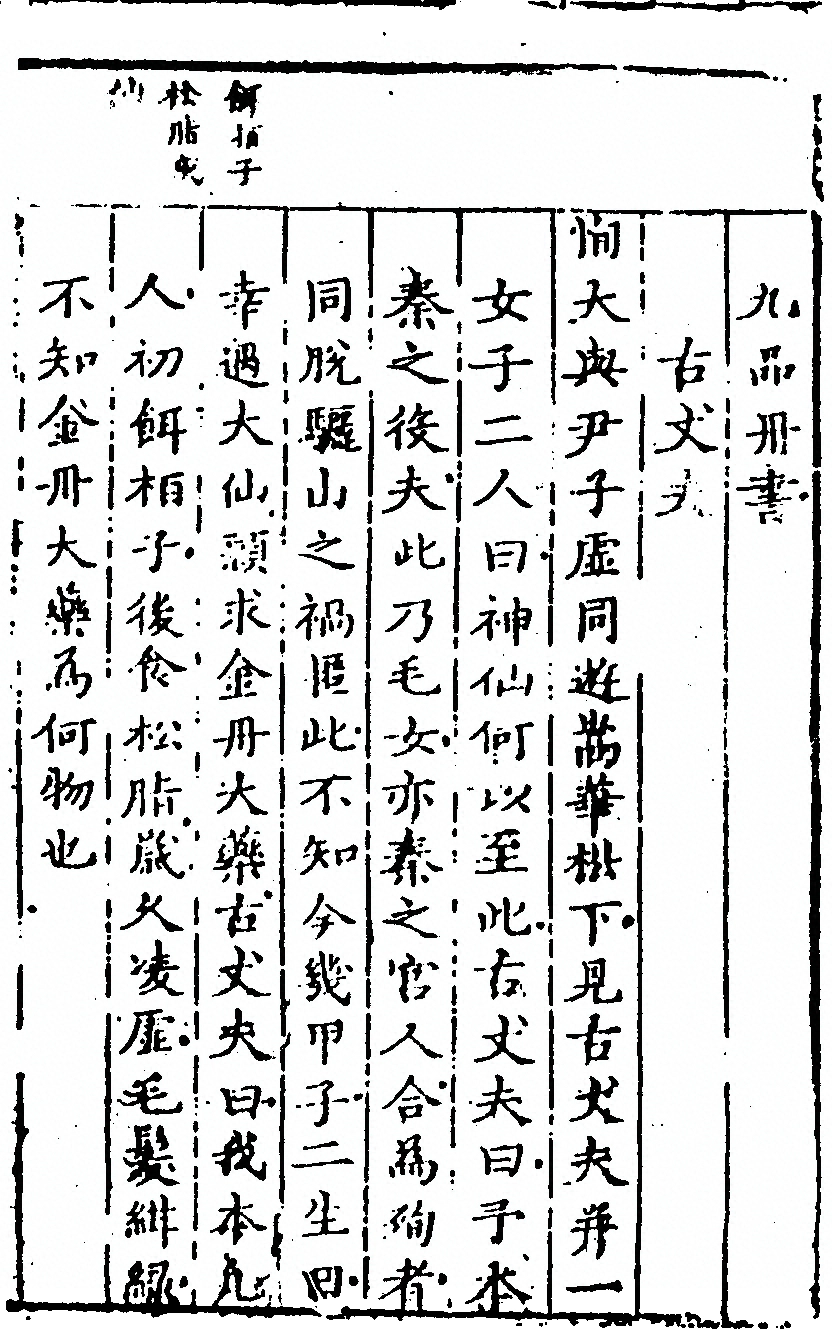 九品丹書
古丈夫
恂大與尹子虛同遊嵩華松下見古丈夫并一
女子二人曰神仙何以至此古丈夫曰予本
秦之役夫此乃毛女亦秦之宮人合為殉者
餌栢子
同脫驪山之禍匿此不知今幾甲子二生曰
幸遇大仙願求金丹大藥古丈夫曰我本凡
松脂成
仙
人初餌栢子後食松脂歲久凌虛毛髮紺綠
不知金丹大藥為何物也